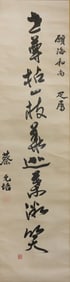 顾海和尚 正属
世尊拈一枝華迦葉微笑
蔡元培